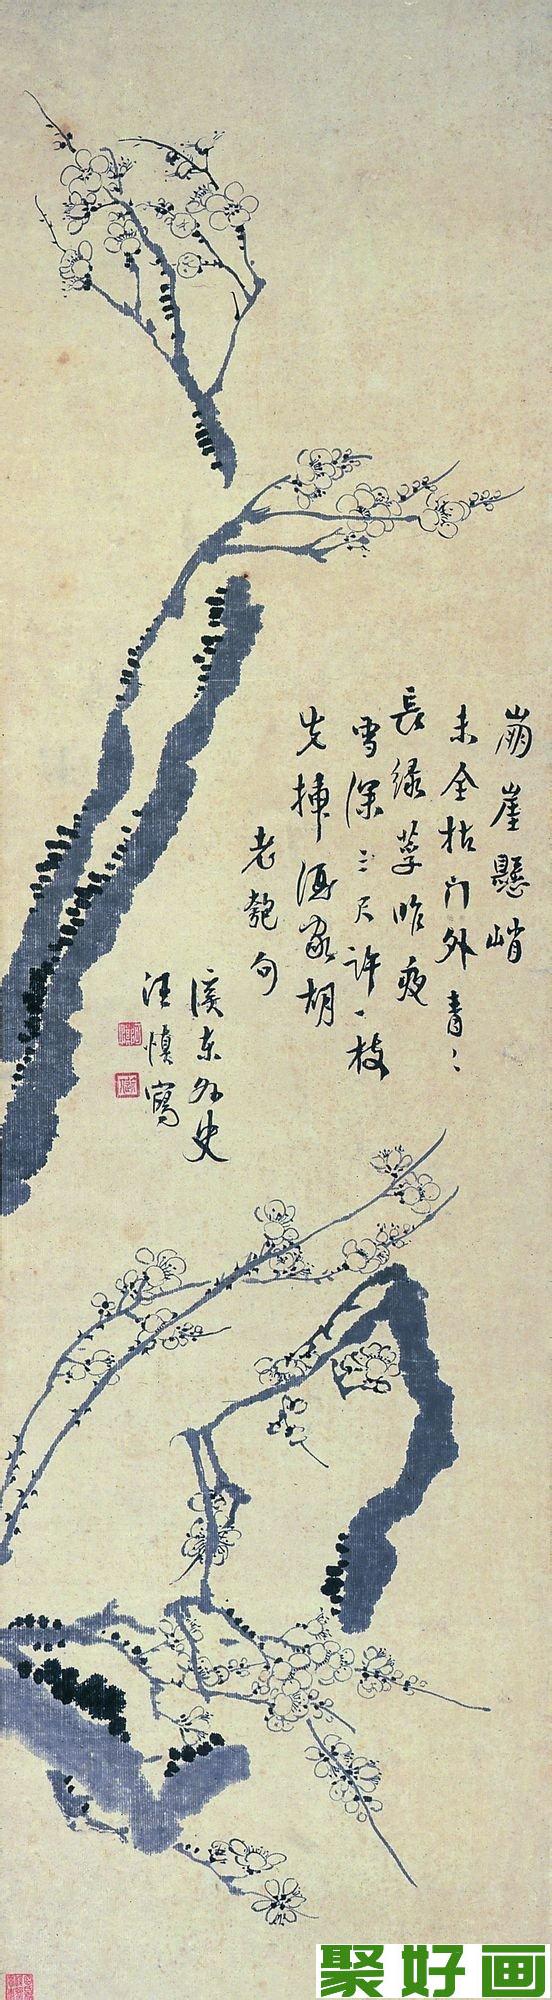 崩崖懸峭
未全枯门外青〻
長绿莩昨夜
雪深三尺许一枝
先掉酒家胡
老匏句
溪东外史
汪慎寫
聚好画